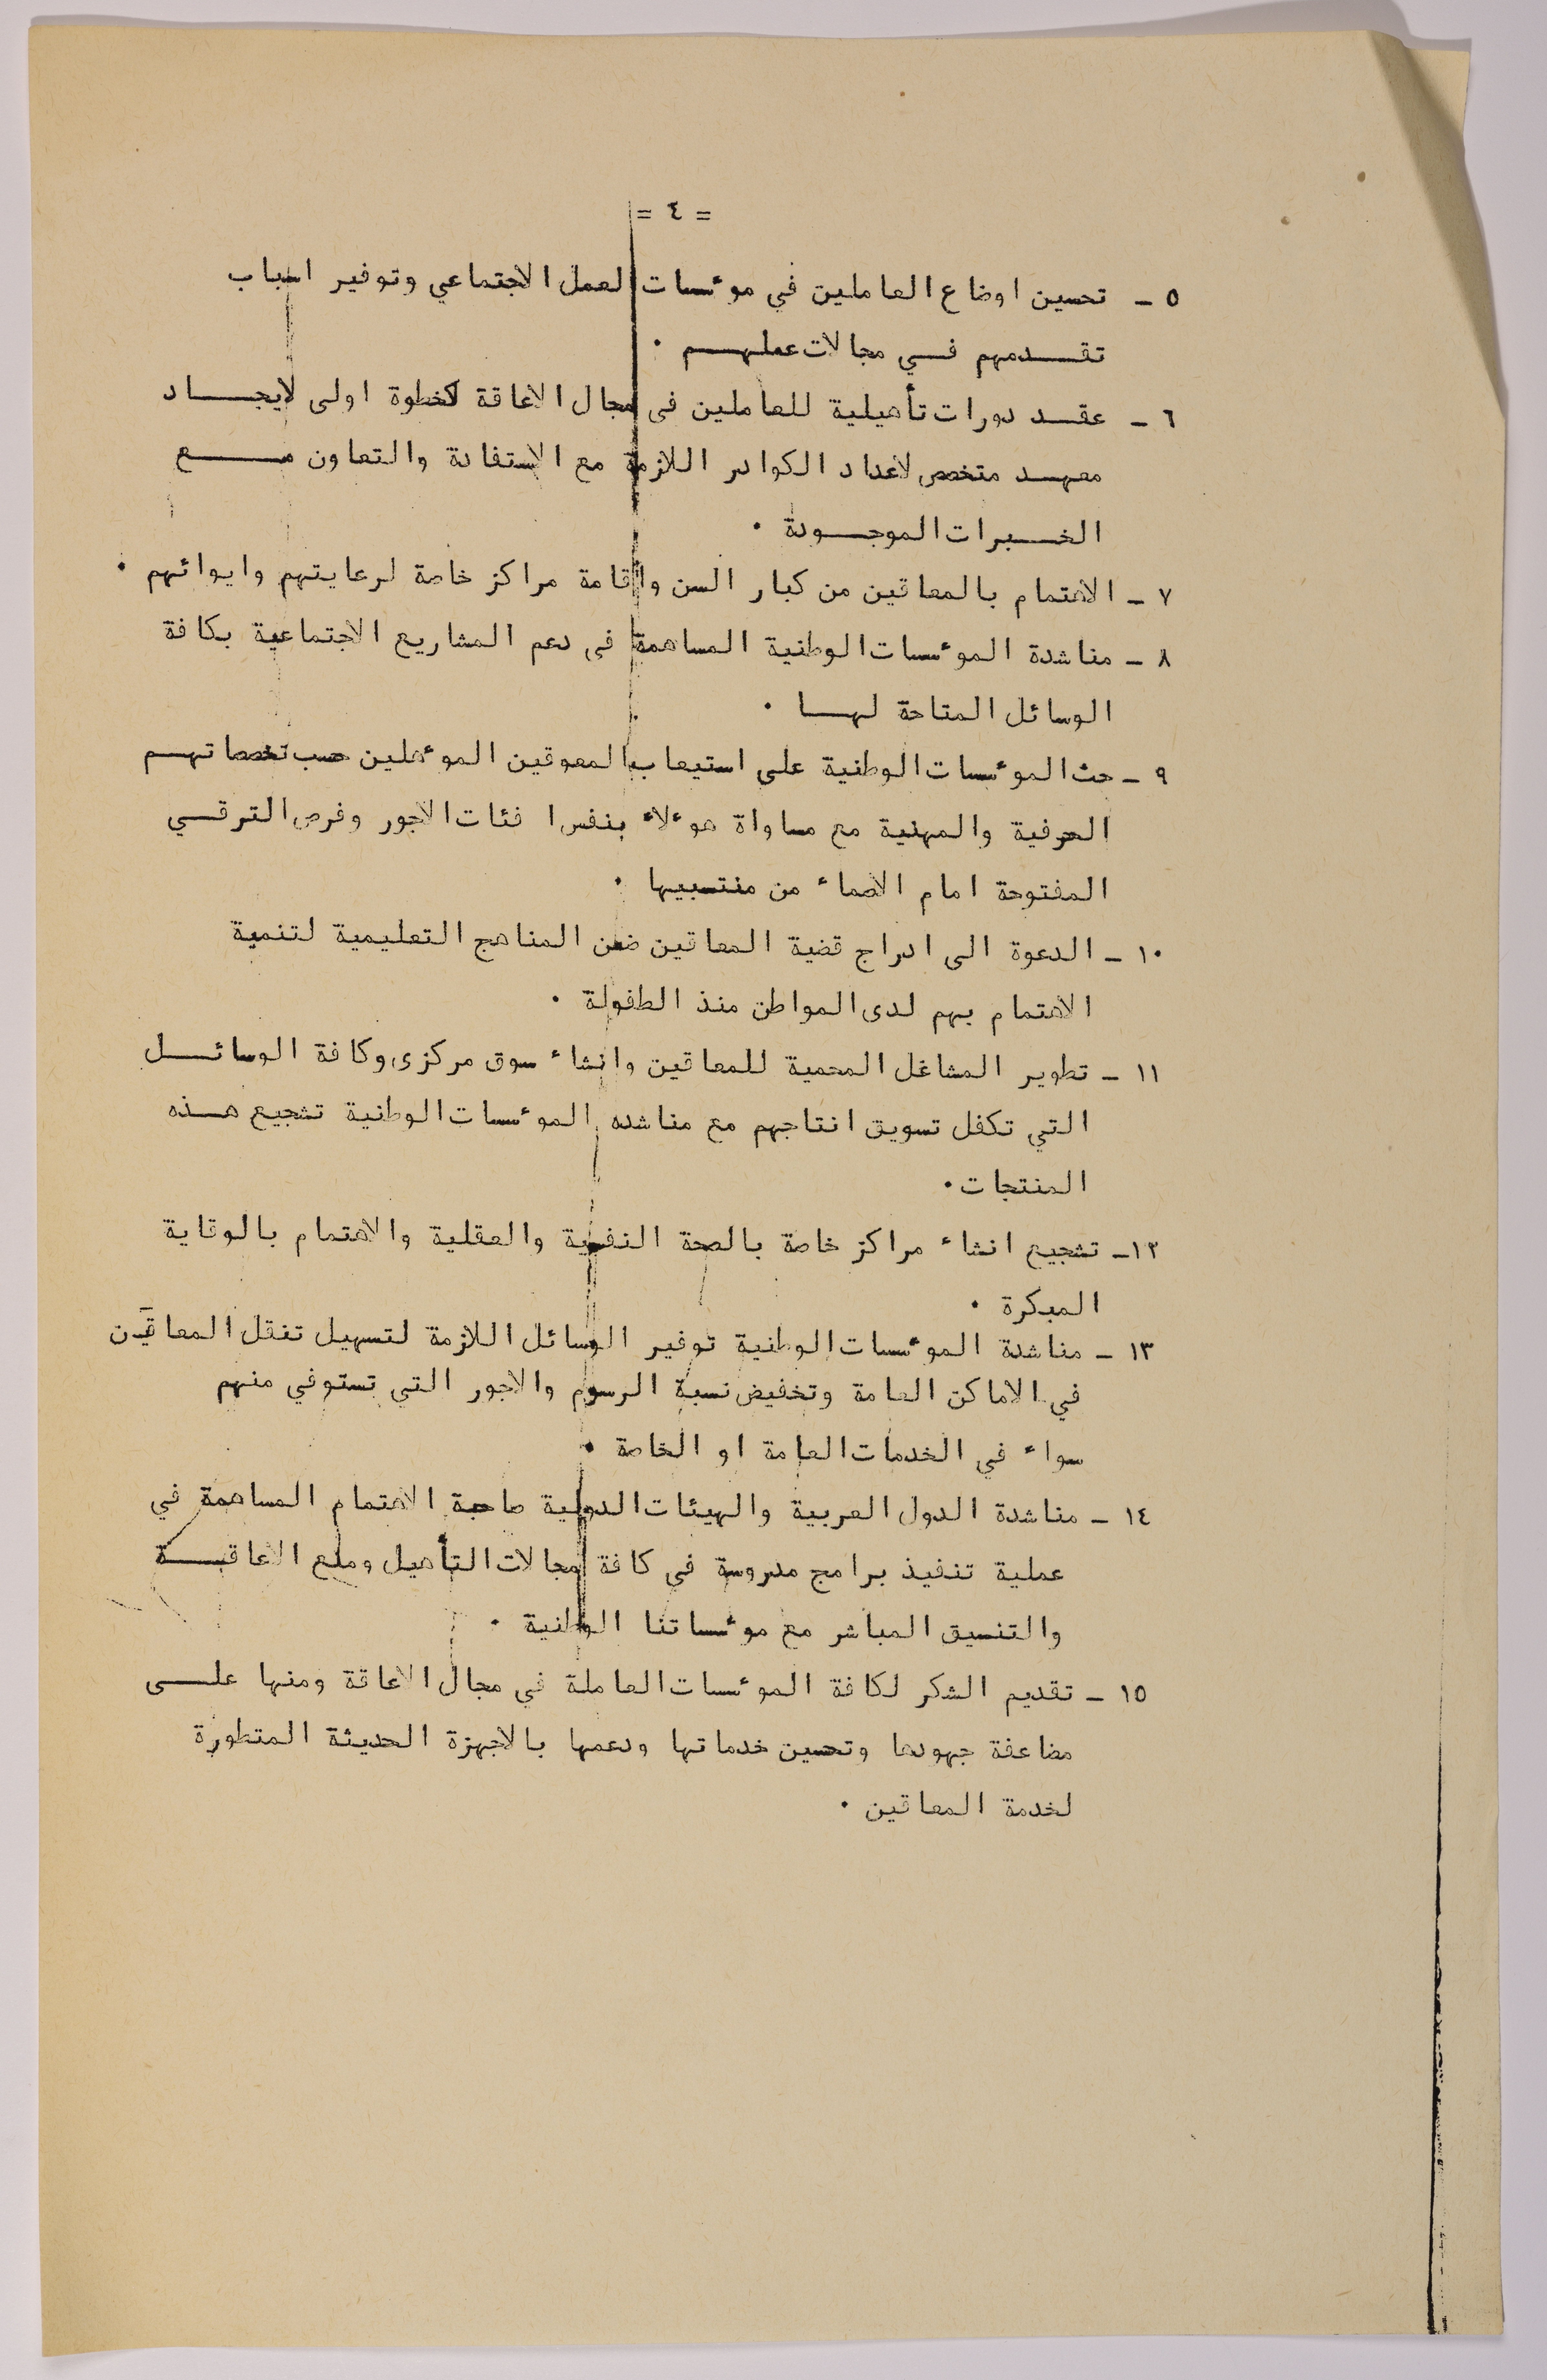 = ٤ =
٥ - تحسين اوضاع العاملين في موءسسات العمل الاجتماعي وتوفير اسباب
تقـــدمهم فـــي مجالات عملهـــم .
٦ - عقـــد دورات تأهيلية للعاملين فى مجال الاعاقة كخطوة اولى لايجـــاد
معهـــد متخصص لاعداد الكوادر اللازمة مع الاستفادة والتعاون مـــع
الخـــبرات الموجـــودة .
٧ - الاهتمام بالمعاقين من كبار السن واقامة مراكز خاصة لرعايتهم وايوائهم .
٨ - مناشدة الموءسسات الوطنية المساهمة فى دعم المشاريع الاجتماعية بكافة
الوسائل المتاحة لهـــا .
٩ - حث الموءسسات الوطنية على استيعاب المعوقين الموءهلين حسب تخصصاتهـــم
الحرفية والمهنية مع مساواة هوءلاء بنفس ا فئات الاجور وفرص الترقـــي
المفتوحة امام الاصماء من منتسبيها .
١٠ - الدعوة الى ادراج قضية المعاقين ضمن المناهج التعليمية لتنمية
الاهتمام بهم لدى المواطن منذ الطفولة .
١١ - تطوير المشاغل المحمية للمعاقين وانشاء سوق مركزى وكافة الوسائـــل
التي تكفل تسويق انتاجهم مع مناشده الموءسسات الوطنية تشجيع هـــذه
المنتجات .
١٢- تشجيع انشاء مراكز خاصة بالصحة النفسية والعقلية والاهتمام بالوقاية
المبكرة .
١٣ - مناشدة الموءسسات الوطنية توفير الوسائل اللازمة لتسهيل تنقل المعاقين
في الاماكن العامة وتخفيض نسبة الرسوم والاجور التي تستوفي منهم
سواء في الخدمات العامة او الخاصة .
١٤ - مناشدة الدول العربية والهيئات الدولية صاحبة الاهتمام المساهمة في
عملية تنفيذ برامج مدروسة في كافة مجالات التأهيل ومنع الاعاقـــة
والتنسيق المباشر مع موءسساتنا الوطنية .
١٥ - تقديم الشكر لكافة الموءسسات العاملة في مجال الاعاقة ومنها علـــى
مضاعفة جهودها وتحسين خدماتها ودعمها بالاجهزة الحديثة المتطورة
لخدمة المعاقين .